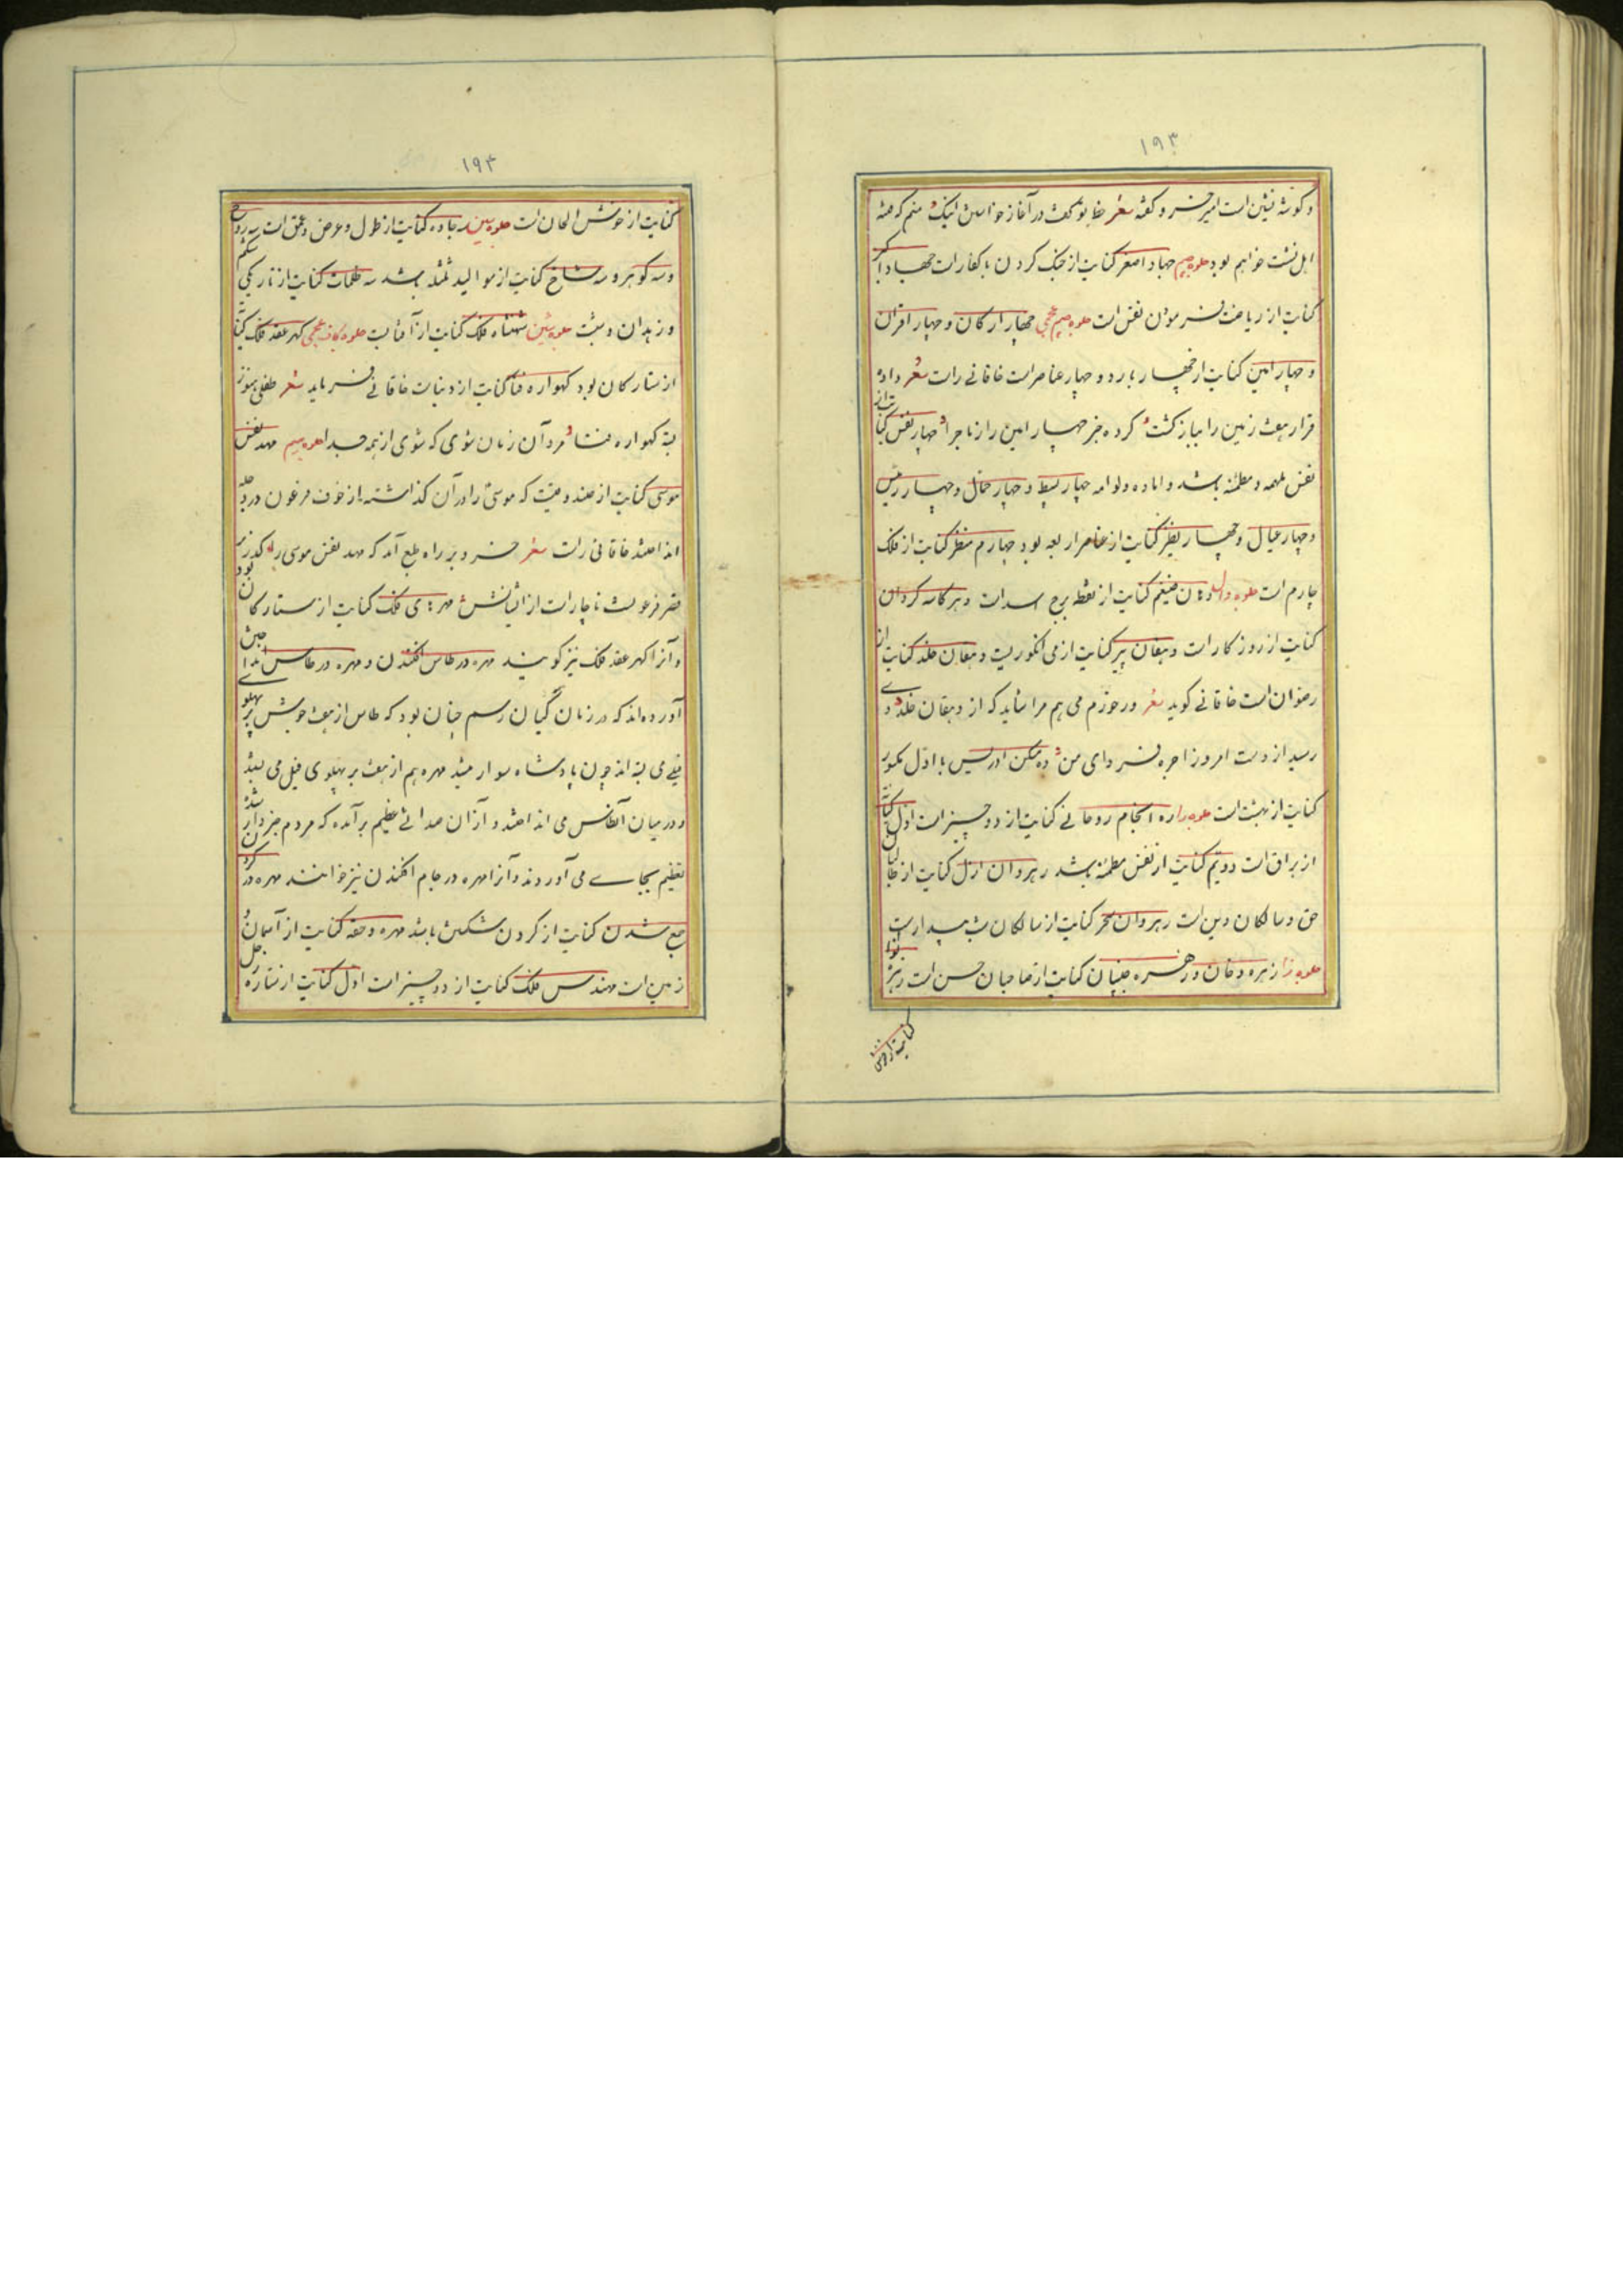 ۱۹۳
و گوشه نشین است امیر خسرو گفته شعر خطا بود گفت در آغاز خواستن لیک منم که فتنه
اهل نشست خواهم بود جلوه جیم جهاد اصغر کنایت از جنگ کردن با کفار است جهاد اکبر
کنایت از ریاضت فرمودن نفس است جلوه جیم عجمی چهار ارکان و چهار اقران
و چهار امین کنایت از چهار یار بود و چهار عناصر است خاقانی راست شعر داده
قرار هفت زمین را بباز گشت کرده خبر چهار امین را ز ماجرا چهار نفس کنایت از
نفس ملهمه و مطمئنه باشد و اماره و لوامه چهار بسیط و چهار حمال و چهار رئیس
و چهار عیال و چهار نظر کنایت از عناصر اربعه بود چهارم منظر کنایت از فلک
چارم است جلوه دال دهان ضیغم کنایت از نقطه برج اسد است دهر کاسه گردان
کنایت از روزگار است دهقان پیر کنایت از می انگوریست دهقان خلد کنایت از
رضوان است خاقانی گوید شعر ور خورم می هم مرا شاید که از دهقان خلد دی
رسید از دست امروز اجره فردای من ده مسکن ادریس با اول مکسور
کنایت از بهشت است جلوه را ره انجام روحانی کنایت از دو چیز است اول کنایت
از براق است دویم کنایت از نفس مطمئنه باشد رهروان ازل کنایت از طالبان
حق و سالکان دین است رهروان سحر کنایت از سالکان شب بیدار است
جلوه زا زهره دخان و زهره جبینان کنایت از صاحبان حسن است زهره نوا
۱۹۴
کنایت از خوش الحان است جلوه سین سه جاده کنایت از طول و عرض و عمق است سه روح
و سه گوهر و سه شاخ کنایت از موالید ثلثه باشد سه ظلمات کنایت از تاریکی شکم
و زهدان و مشیمه جلوه شین شهنشاه فلک کنایت از آفتابست جلوه کاف عجمی گهر عقد فلک کنایت
از ستارگان بود گهواره فنا کنایت از دنیاست خاقانی فرماید شعر طفلی هنوز
بسته گهواره فنا مرد آن زمان شوی که شوی از همه جدا جلوه میم مهد نفس
موسی کنایت از صندوقیست که موسی را در آن گذاشته از خوف فرعون در دجله
انداختند خاقانی راست شعر خسرو بد راه طبع آمد که مهد نفس موسی را گذر بر
قصر فرعونست ناچار است از اتیانش مهرهای فلک کنایت از ستارگان بود
و آنرا گهر عقد فلک نیز گویند مهره در طاس افکندن و مهره در طاس انداختن
آورده اند که در زمان کیان رسم چنان بود که طاس از هفت جوش بر پهلوی
فیلی می بسته اند چون پادشاه سوار میشد مهره هم از هفت بر پهلوی فیل می بستند
و در میان آن طاس می انداختند و از آن صدائی عظیم بر آمده که مردم خبردار شدن
تعظیم بجای می آوردند و آنرا مهره در جام افکندن نیز خوانند مهره در
جمع شدن کنایت از گردن شکستن باشد مهره و حقه کنایت از آسمان و
زمین است مهندس فلک کنایت از دو چیز است اول کنایت از ستاره زحل